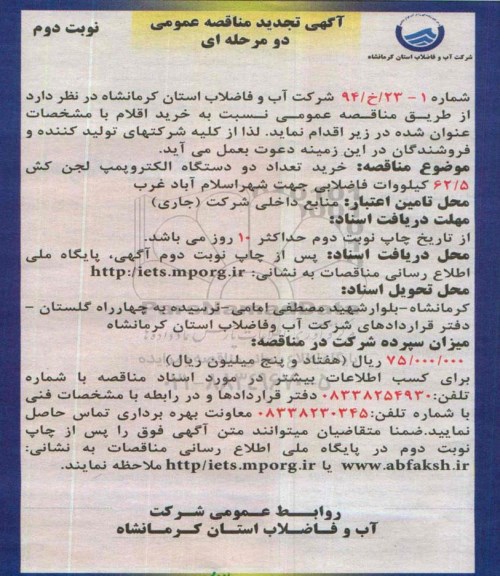 آگهی تجدید مناقصه عمومی
دو مرحله ای
نوبت دوم
شرکت آب و فاضلاب استان کرمانشاه
شماره ۱ - ۲۳/خ/۹۴ شرکت آب و فاضلاب استان کرمانشاه در نظر دارد
از طریق مناقصه عمومی نسبت به خرید اقلام با مشخصات
عنوان شده در زیر اقدام نماید. لذا از کلیه شرکتهای تولید کننده و
فروشندگان در این زمینه دعوت بعمل می آید.
موضوع مناقصه: خرید تعداد دو دستگاه الکتروپمپ لجن کش
۶۲/۵ کیلووات فاضلابی جهت شهراسلام آباد غرب
محل تامین اعتبار: منابع داخلی شرکت (جاری)
مهلت دریافت اسناد:
از تاریخ چاپ نوبت دوم حداکثر ۱۰ روز می باشد.
محل دریافت اسناد: پس از چاپ نوبت دوم آگهی، پایگاه ملی
اطلاع رسانی مناقصات به نشانی: http:/iets.mporg.ir
محل تحویل اسناد:
کرمانشاه-بلوارشهید مصطفی امامی-نرسیده به چهارراه گلستان -
دفتر قراردادهای شرکت آب وفاضلاب استان کرمانشاه
میزان سپرده شرکت در مناقصه:
۷۵/۰۰۰/۰۰۰ ریال (هفتاد و پنج میلیون ریال)
برای کسب اطلاعات بیشتر در مورد اسناد مناقصه با شماره
تلفن:۰۸۳۳۸۲۵۴۹۳۰ دفتر قراردادها و در رابطه با مشخصات فنی
با شماره تلفن:۰۸۳۳۸۲۳۰۳۴۵ معاونت بهره برداری تماس حاصل
نمایید.ضمنا متقاضیان میتوانند متن آگهی فوق را پس از چاپ
نوبت دوم در پایگاه ملی اطلاع رسانی مناقصات به نشانی:
www.abfaksh.ir یا http/iets.mporg.ir ملاحظه نمایند.
روابط عمومی شرکت
آب و فاضلاب استان کرمانشاه